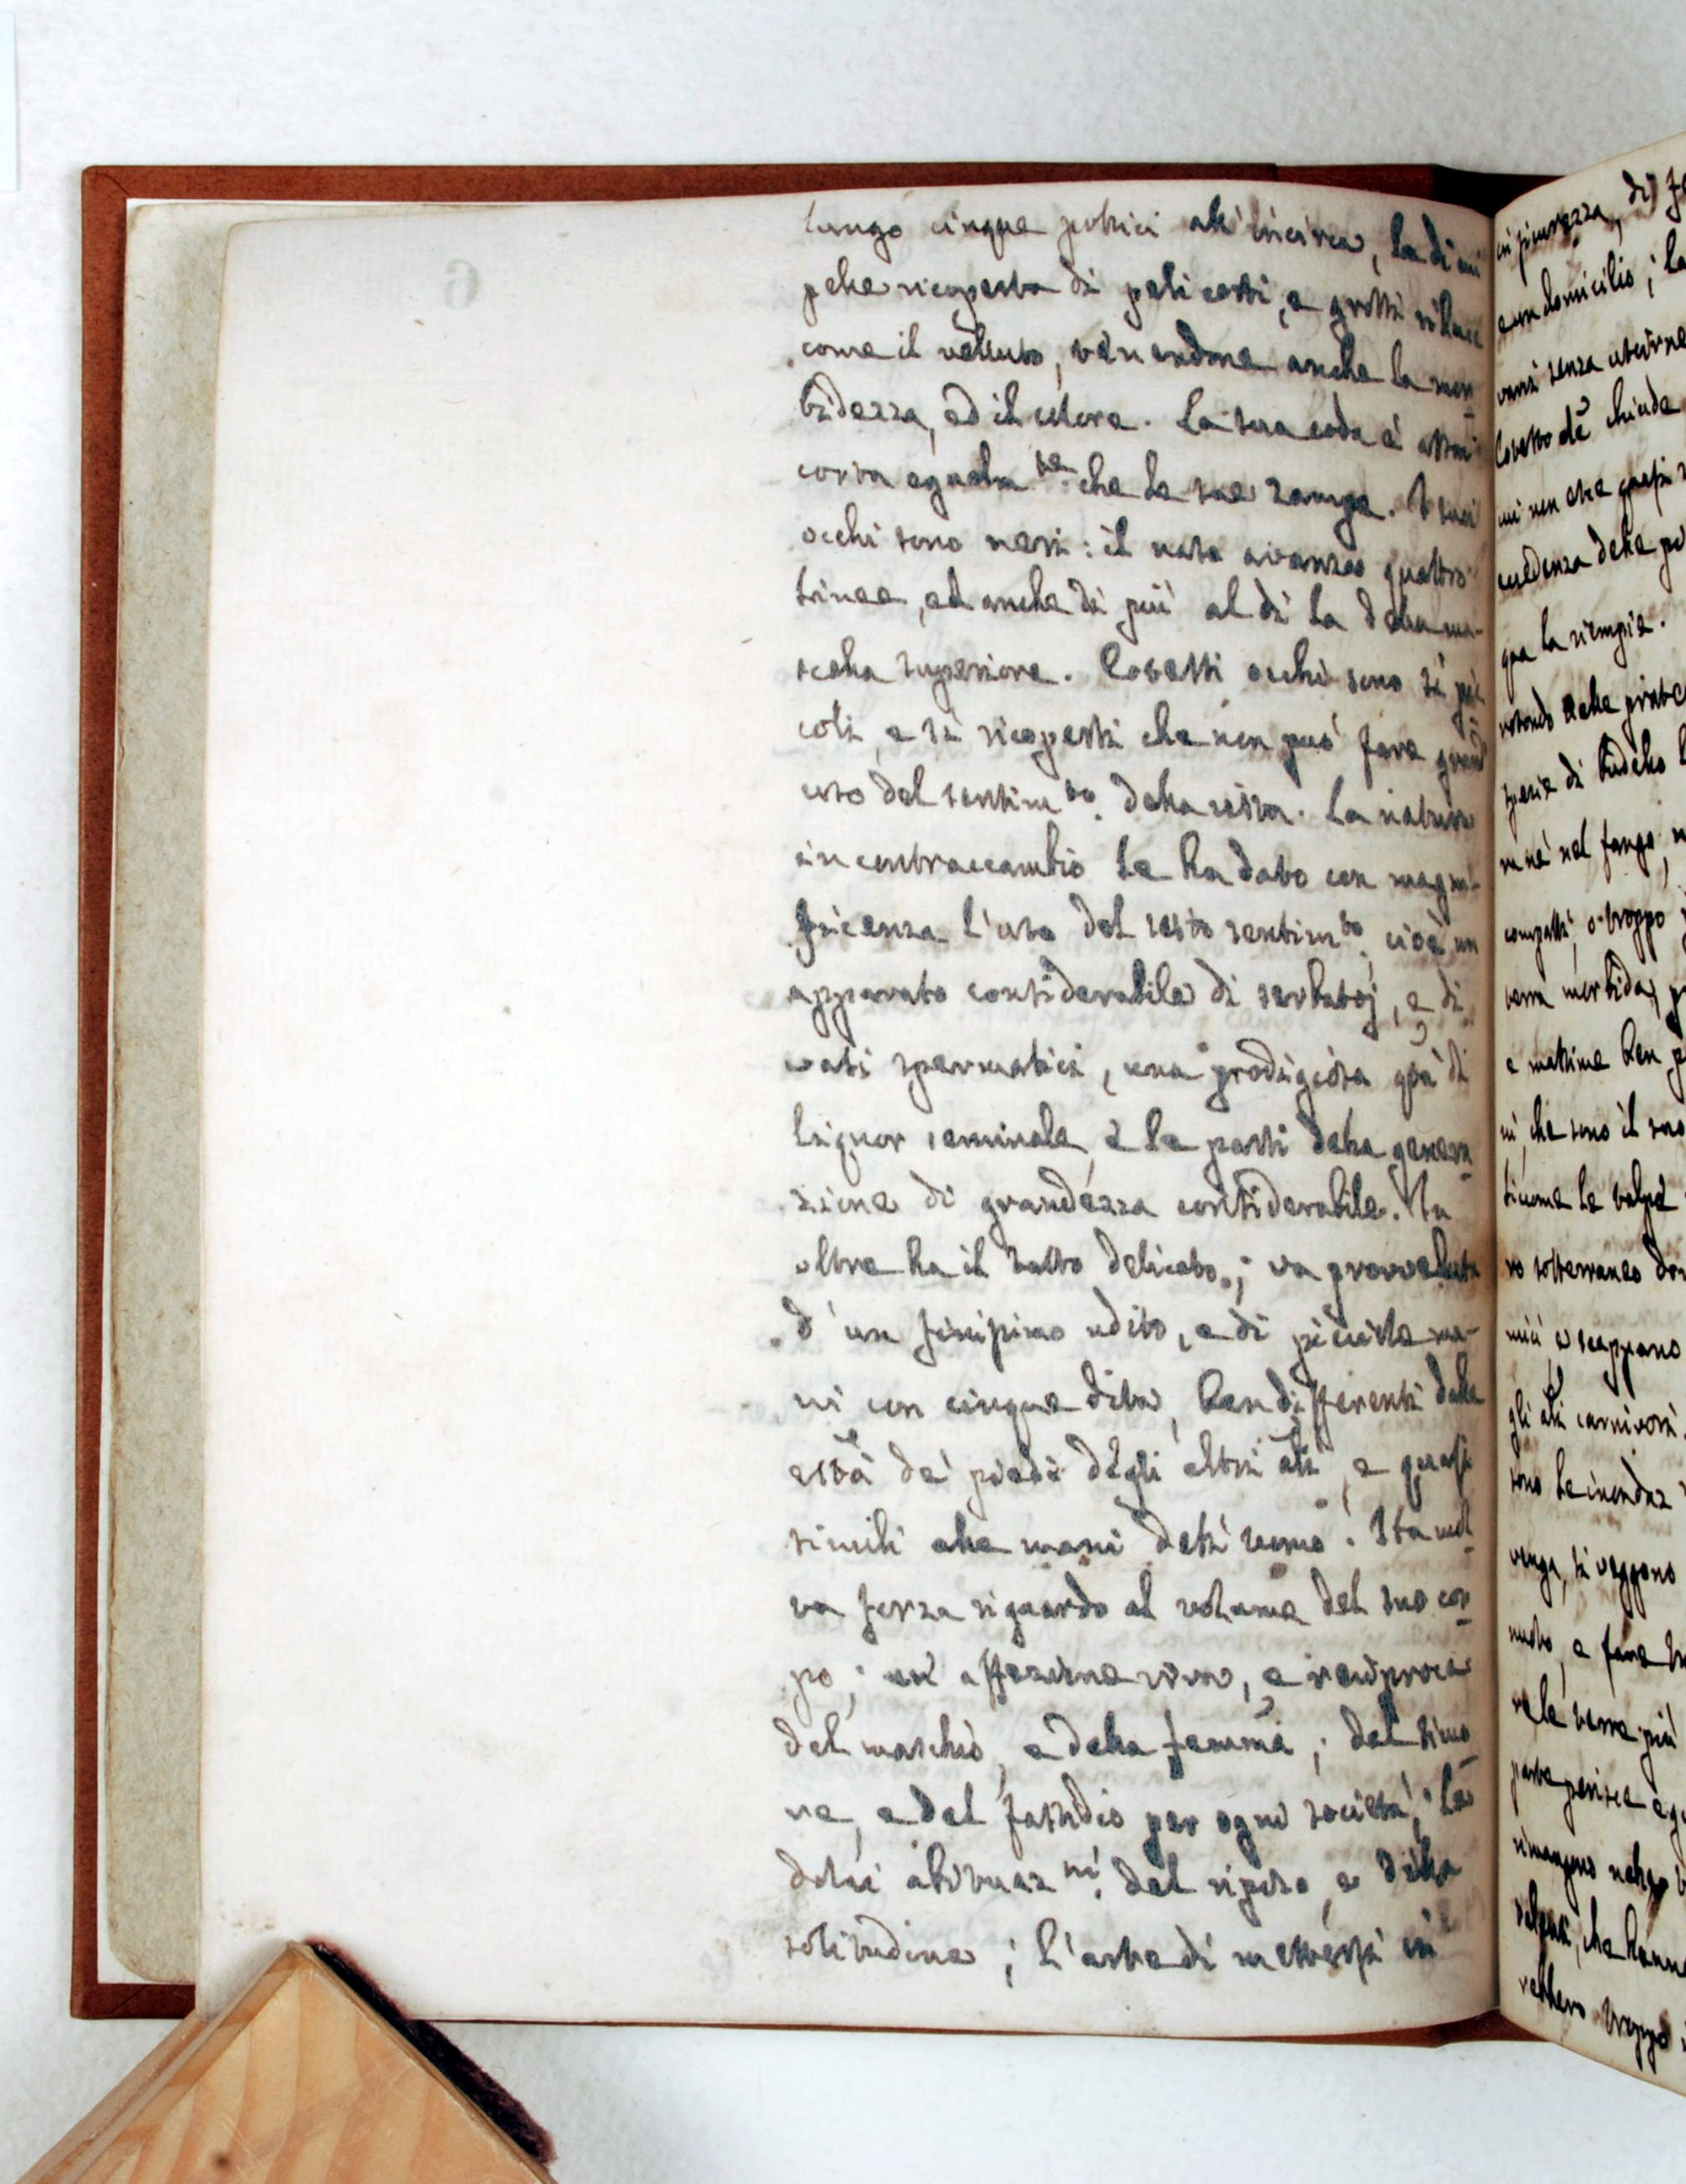 lungo cinque pollici all'incirca, la di cui
pelle ricoperta di peli corti, e grossi riluce
come il velluto, tenendone anche la mor
bidezza, ed il colore. La sua coda è assai
corta egualm.te che le sue zampe. I suoi
occhi sono neri: il naso avanza quattro
linee, ed anche di più al di la della ma-
scella superiore. Cotesti occhi sono sì pic
coli, e sì ricoperti che non può fare gran
uso del sentim.to della vista. La natura
in contraccambio le ha dato con magni-
ficenza l'uso del sesto sentim.to, cioè un
apparato considerabile di serbatoj, e di
vasi spermatici, una prodigiosa qtà di
liquor seminale, e le parti della genera
zione di grandezza considerabile. In
oltre ha il tatto delicato; va provveduta
d'un finissimo udito, e di picciole ma-
ni con cinque dita, ben differenti dalle
està de' piedi degli altri ali, e quasi
simili alle mani dell'uomo. Ha mol
ta forza riguardo al volume del suo cor
po; un'affezione viva, e reciproca
del maschio, e della femma; del timo
re, e del fastidio per ogni società; le
dolci abituaz.ni del riposo, e della
solitudine; l'arte di mettersi in
6
in sicurezza, di
un domicilio; la
senza uscirne
chiude
mi non che quasi
credenza delle
qua la riempie.
rotondo nelle
specie di budello
nè nel fango,
compatti, o troppo
terra morbida,
e massime ben
ni, che sono il suo
siccome le talpe
ro sotterraneo
mici, e scappano
gli ali carnivori.
sono le inondaz
venga, si veggono
nuoto, e fare
parte perisce
rimangono nelle
che hanno
rebbero troppo